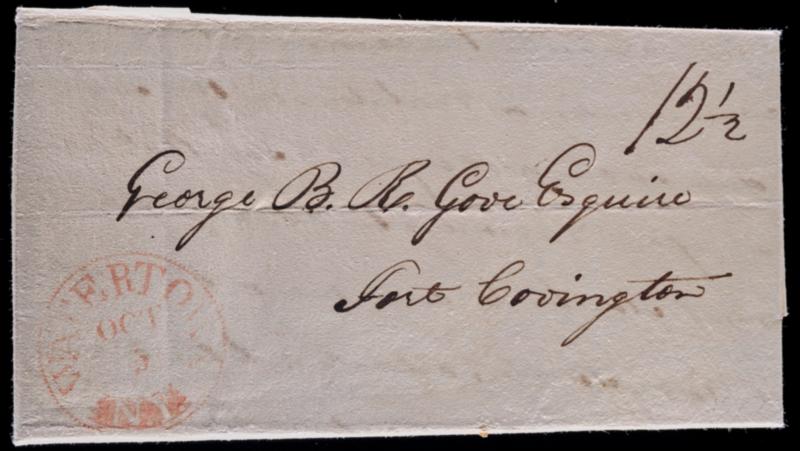 12 1/2
George B. R. Gove Esquire
Fort Covington
WATERTOWN
OCT
3
N.Y.